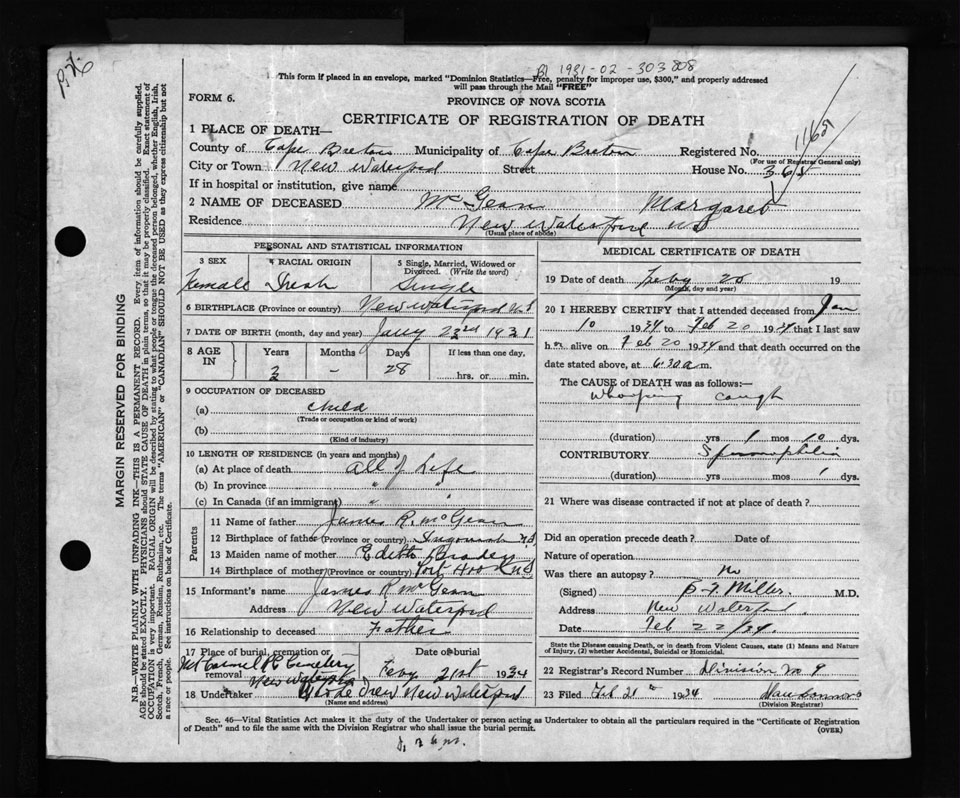 B 1931-02-303808
This form if placed in an envelope, marked "Dominion Statistics—Free, penalty for improper use, $300," and properly addressed
will pass through the Mail "FREE"
FORM 6.
PROVINCE OF NOVA SCOTIA
CERTIFICATE OF REGISTRATION OF DEATH
MARGIN RESERVED FOR BINDING
N.B.—WRITE PLAINLY WITH UNFADING INK—THIS IS A PERMANENT RECORD. Every item of information should be carefully supplied.
AGE should be stated EXACTLY. PHYSICIANS should STATE CAUSE OF DEATH in plain terms, so that it may be properly classified. Exact statement of
OCCUPATION is very important. RACIAL ORIGIN will be described by stating to what people or tongue the deceased person belonged, whether English, Irish,
Scotch, French, German, Russian, Ruthenian, etc. The terms "AMERICAN" or "CANADIAN" SHOULD NOT BE USED as they express citizenship but not
a race or people. See instructions on back of Certificate.
1 PLACE OF DEATH—
County of Cape Breton Municipality of Cape Breton Registered No. 1165
(For use of Registrar General only)
City or Town New Waterford Street House No. 365
If in hospital or institution, give name
2 NAME OF DECEASED McGean Margaret
Residence New Waterford NS
(Usual place of abode)
PERSONAL AND STATISTICAL INFORMATION
3 SEX 4 RACIAL ORIGIN 5 Single, Married, Widowed or
Divorced. (Write the word)
Female Irish Single
6 BIRTHPLACE (Province or country) New Waterford N.S
7 DATE OF BIRTH (month, day and year) Jany 23rd 1931
8 AGE IN Years Months Days If less than one day,
3 - 28 hrs. or min.
9 OCCUPATION OF DECEASED
(a) child
(Trade or occupation or kind of work)
(b)
(Kind of industry)
10 LENGTH OF RESIDENCE (in years and months)
(a) At place of death all of Life
(b) In province " "
(c) In Canada (if an immigrant) " "
Parents
11 Name of father James R. McGean
12 Birthplace of father (Province or country) Ingonish NS
13 Maiden name of mother Edith Brades
14 Birthplace of mother (Province or country) Port Hood NS
15 Informant's name James R McGean
Address New Waterford
16 Relationship to deceased Father
17 Place of burial, cremation or removal Date of burial
Mt Carmel RC Cemetery
New Waterford Feby 21st 1934
18 Undertaker Drew New Waterford
(Name and address)
MEDICAL CERTIFICATE OF DEATH
19 Date of death Feby 20 19
(Month, day and year)
20 I HEREBY CERTIFY that I attended deceased from Jan
10 1934 to Feb 20 1934 that I last saw
her alive on Feb 20 1934 and that death occurred on the
date stated above, at 6.30 a m.
The CAUSE OF DEATH was as follows:—
Whooping cough
(duration) yrs 1 mos 10 dys.
CONTRIBUTORY Spasmophilia
(duration) yrs mos 1 dys.
21 Where was disease contracted if not at place of death?
Did an operation precede death? Date of
Nature of operation
Was there an autopsy? No
(Signed) Miller. M.D.
Address New Waterford
Date Feb 22/34.
State the Disease causing Death, or in death from Violent Causes, state (1) Means and
Nature of Injury, (2) whether Accidental, Suicidal or Homicidal.
22 Registrar's Record Number Division No 9
23 Filed Feb 21st 1934
(Division Registrar)
Sec. 46—Vital Statistics Act makes it the duty of the Undertaker or person acting as Undertaker to obtain all the particulars required in the "Certificate of Registration
of Death" and to file the same with the Division Registrar who shall issue the burial permit.
(OVER)